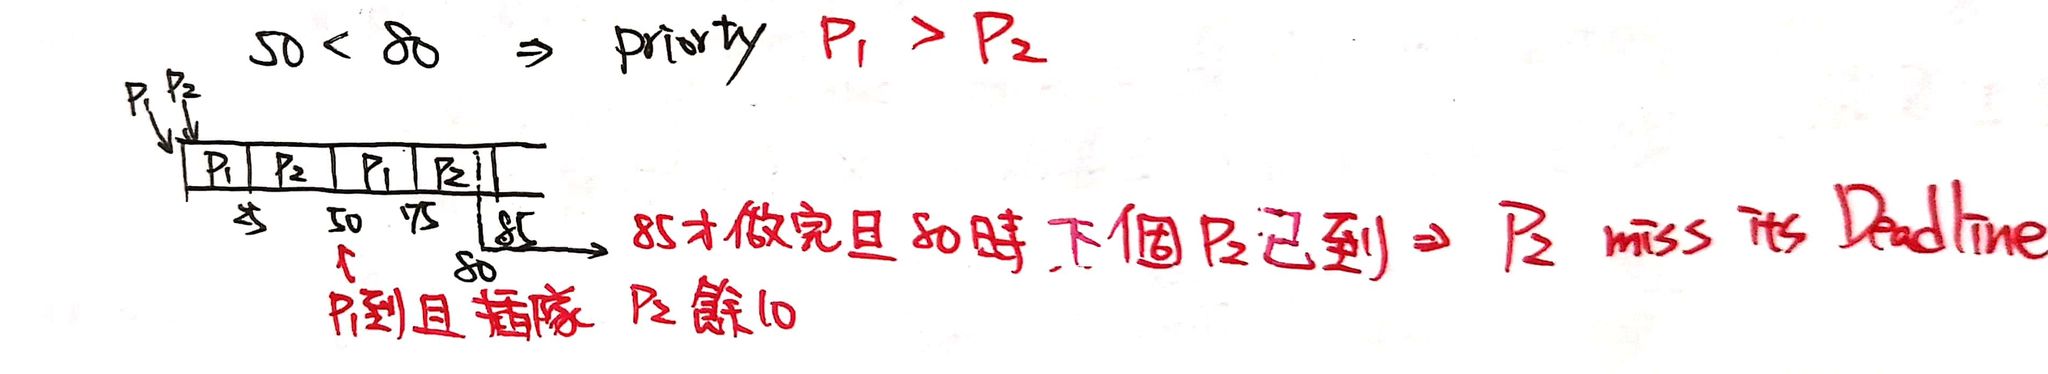 50 < 80 ⇒ priorty P₁ > P₂
P₁ P₂
P₁ P₂ P₁ P₂
25 50 75 80 85
85才做完且80時下個P₂已到 ⇒ P₂ miss its Deadline
↑
P₁到且插隊 P₂餘10